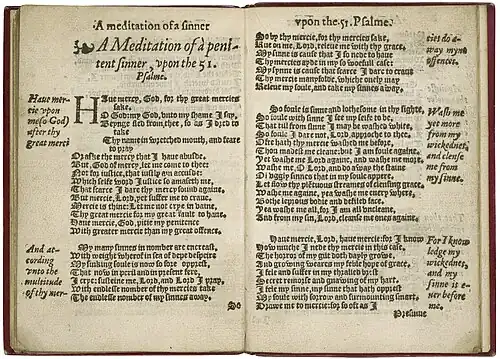 A meditation of a sinner
A Meditation of a peni-
tent sinner, vpon the 51.
Psalme.
Haue mer-
cie vpon
me (o God)
after thy
great merci
HAue mercy, God, for thy great mercies
sake.
O God: my God, vnto my shame I say,
Beynge fled from thee, so as I dred to
take
Thy name in wretched mouth, and feare
to pray
Or aske the mercy that I haue abusde.
But, God of mercy, let me come to thee:
Not for iustice, that iustly am accusde:
Which selfe word Iustice so amaseth me,
That scarce I dare thy mercy sound againe.
But mercie, Lord, yet suffer me to craue.
Mercie is thine: Let me not crye in vaine,
Thy great mercie for my great fault to haue.
Haue mercie, God, pitie my penitence
With greater mercie than my great offence.
And ac-
cording
vnto the
multitude
of thy mer-
My many sinnes in number are encreast,
With weight wherof in sea of depe despeire
My sinking soule is now so sore opprest,
That now in peril and in present fere,
I crye: susteine me, Lord, and Lord I pray,
With endlesse nomber of thy mercies take
The endlesse nomber of my sinnes away.
So
vpon the 51. Psalme.
So by thy mercie, for thy mercies sake,
Rue on me, Lord, releue me with thy grace.
My sinne is cause that I so nede to haue
Thy mercies ayde in my so woefull case:
My synne is cause that scarce I dare to craue
Thy mercie manyfolde, which onely may
Releue my soule, and take my sinnes away.
cies do a-
way myne
offences.
So foule is sinne and lothesome in thy sighte,
So foule with sinne I see my selfe to be,
That till from sinne I may be washed white,
So foule I dare not, Lord, approche to thee.
Ofte hath thy mercie washed me before,
Thou madest me cleane: but I am foule againe.
Yet washe me Lord againe, and washe me more.
Washe me, O Lord, and do away the staine
Of vggly sinnes that in my soule appere.
Let flow thy plētuous streames of clensing grace.
Washe me againe, yea washe me euery where,
Bothe leprous bodie and defiled face.
Yea washe me all, for I am all vncleane,
And from my sin, Lord, cleanse me ones againe.
Wash me
yet more
from my
wickednes,
and clense
me from
my sinne.
Haue mercie, Lord, haue mercie: for I know
How muche I nede thy mercie in this case.
The horror of my gilt doth dayly growe,
And growing weares my feble hope of grace.
I fele and suffer in my thralled brest
Secret remorse and gnawing of my hart.
I fele my sinne, my sinne that hath opprest
My soule with sorrow and surmounting smart.
Drawe me to mercie: for so oft as I
For I know-
ledge my
wickednes,
and my
sinne is e-
uer before
me.
Presume